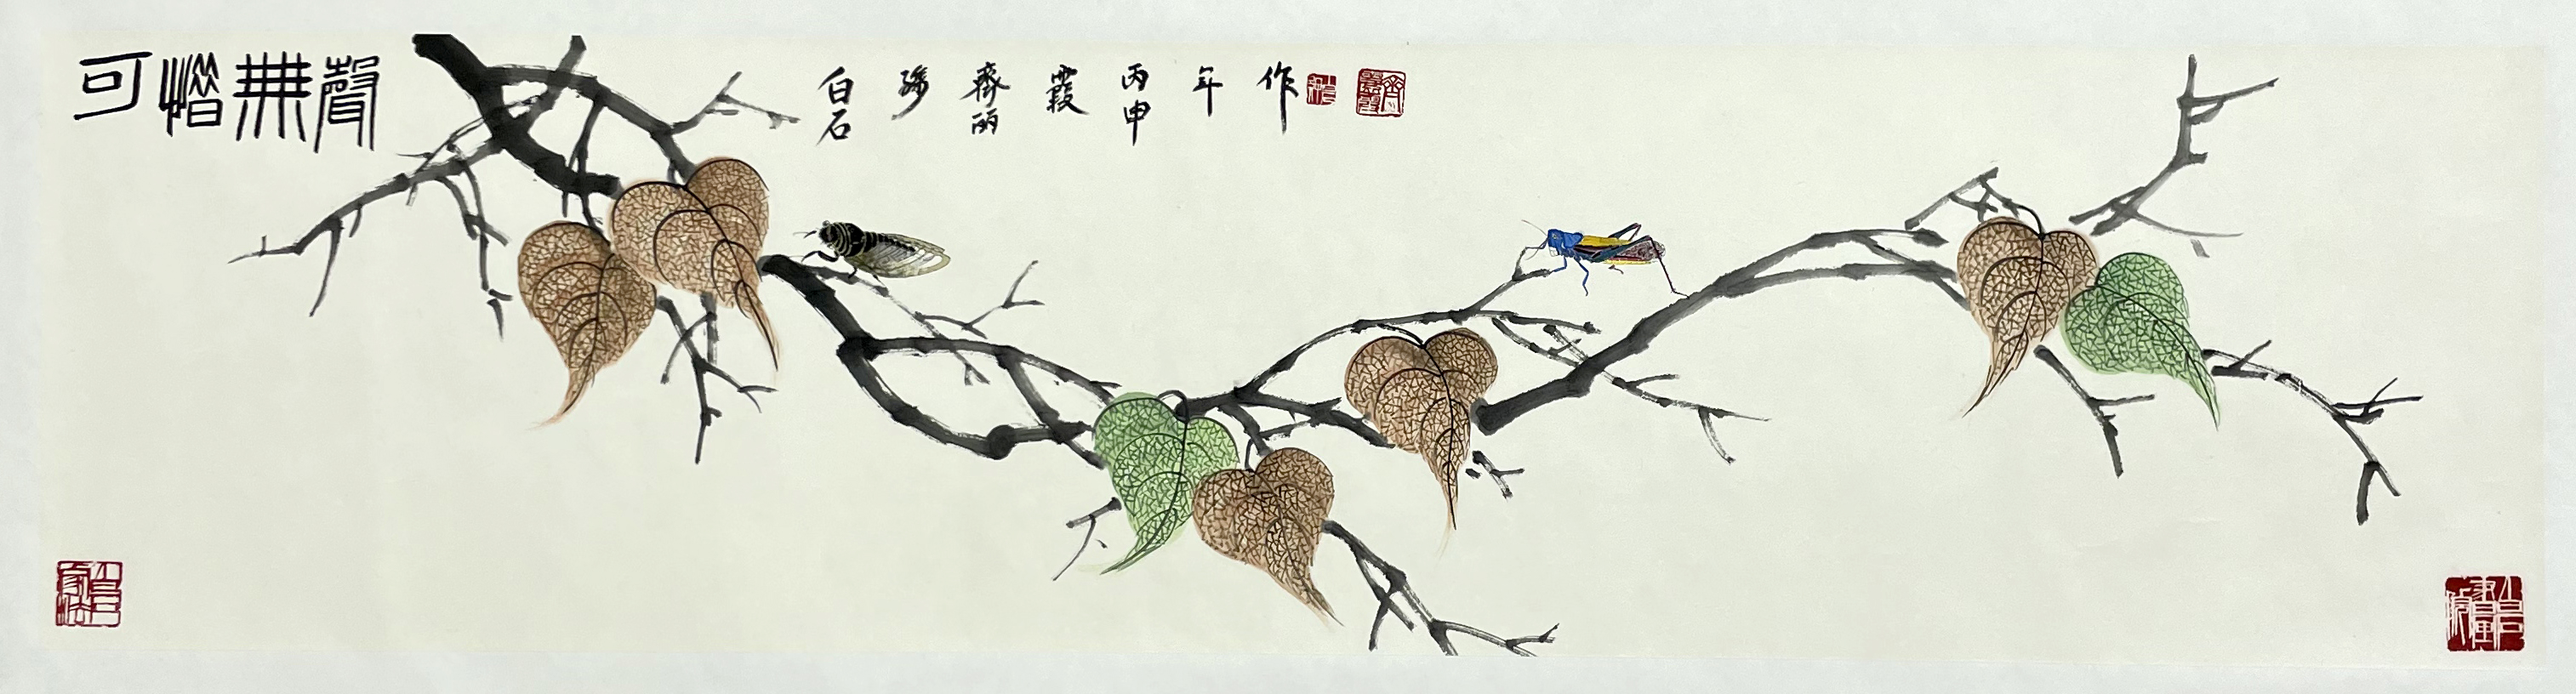 可惜無聲
白石孫齊丽霞丙申年作